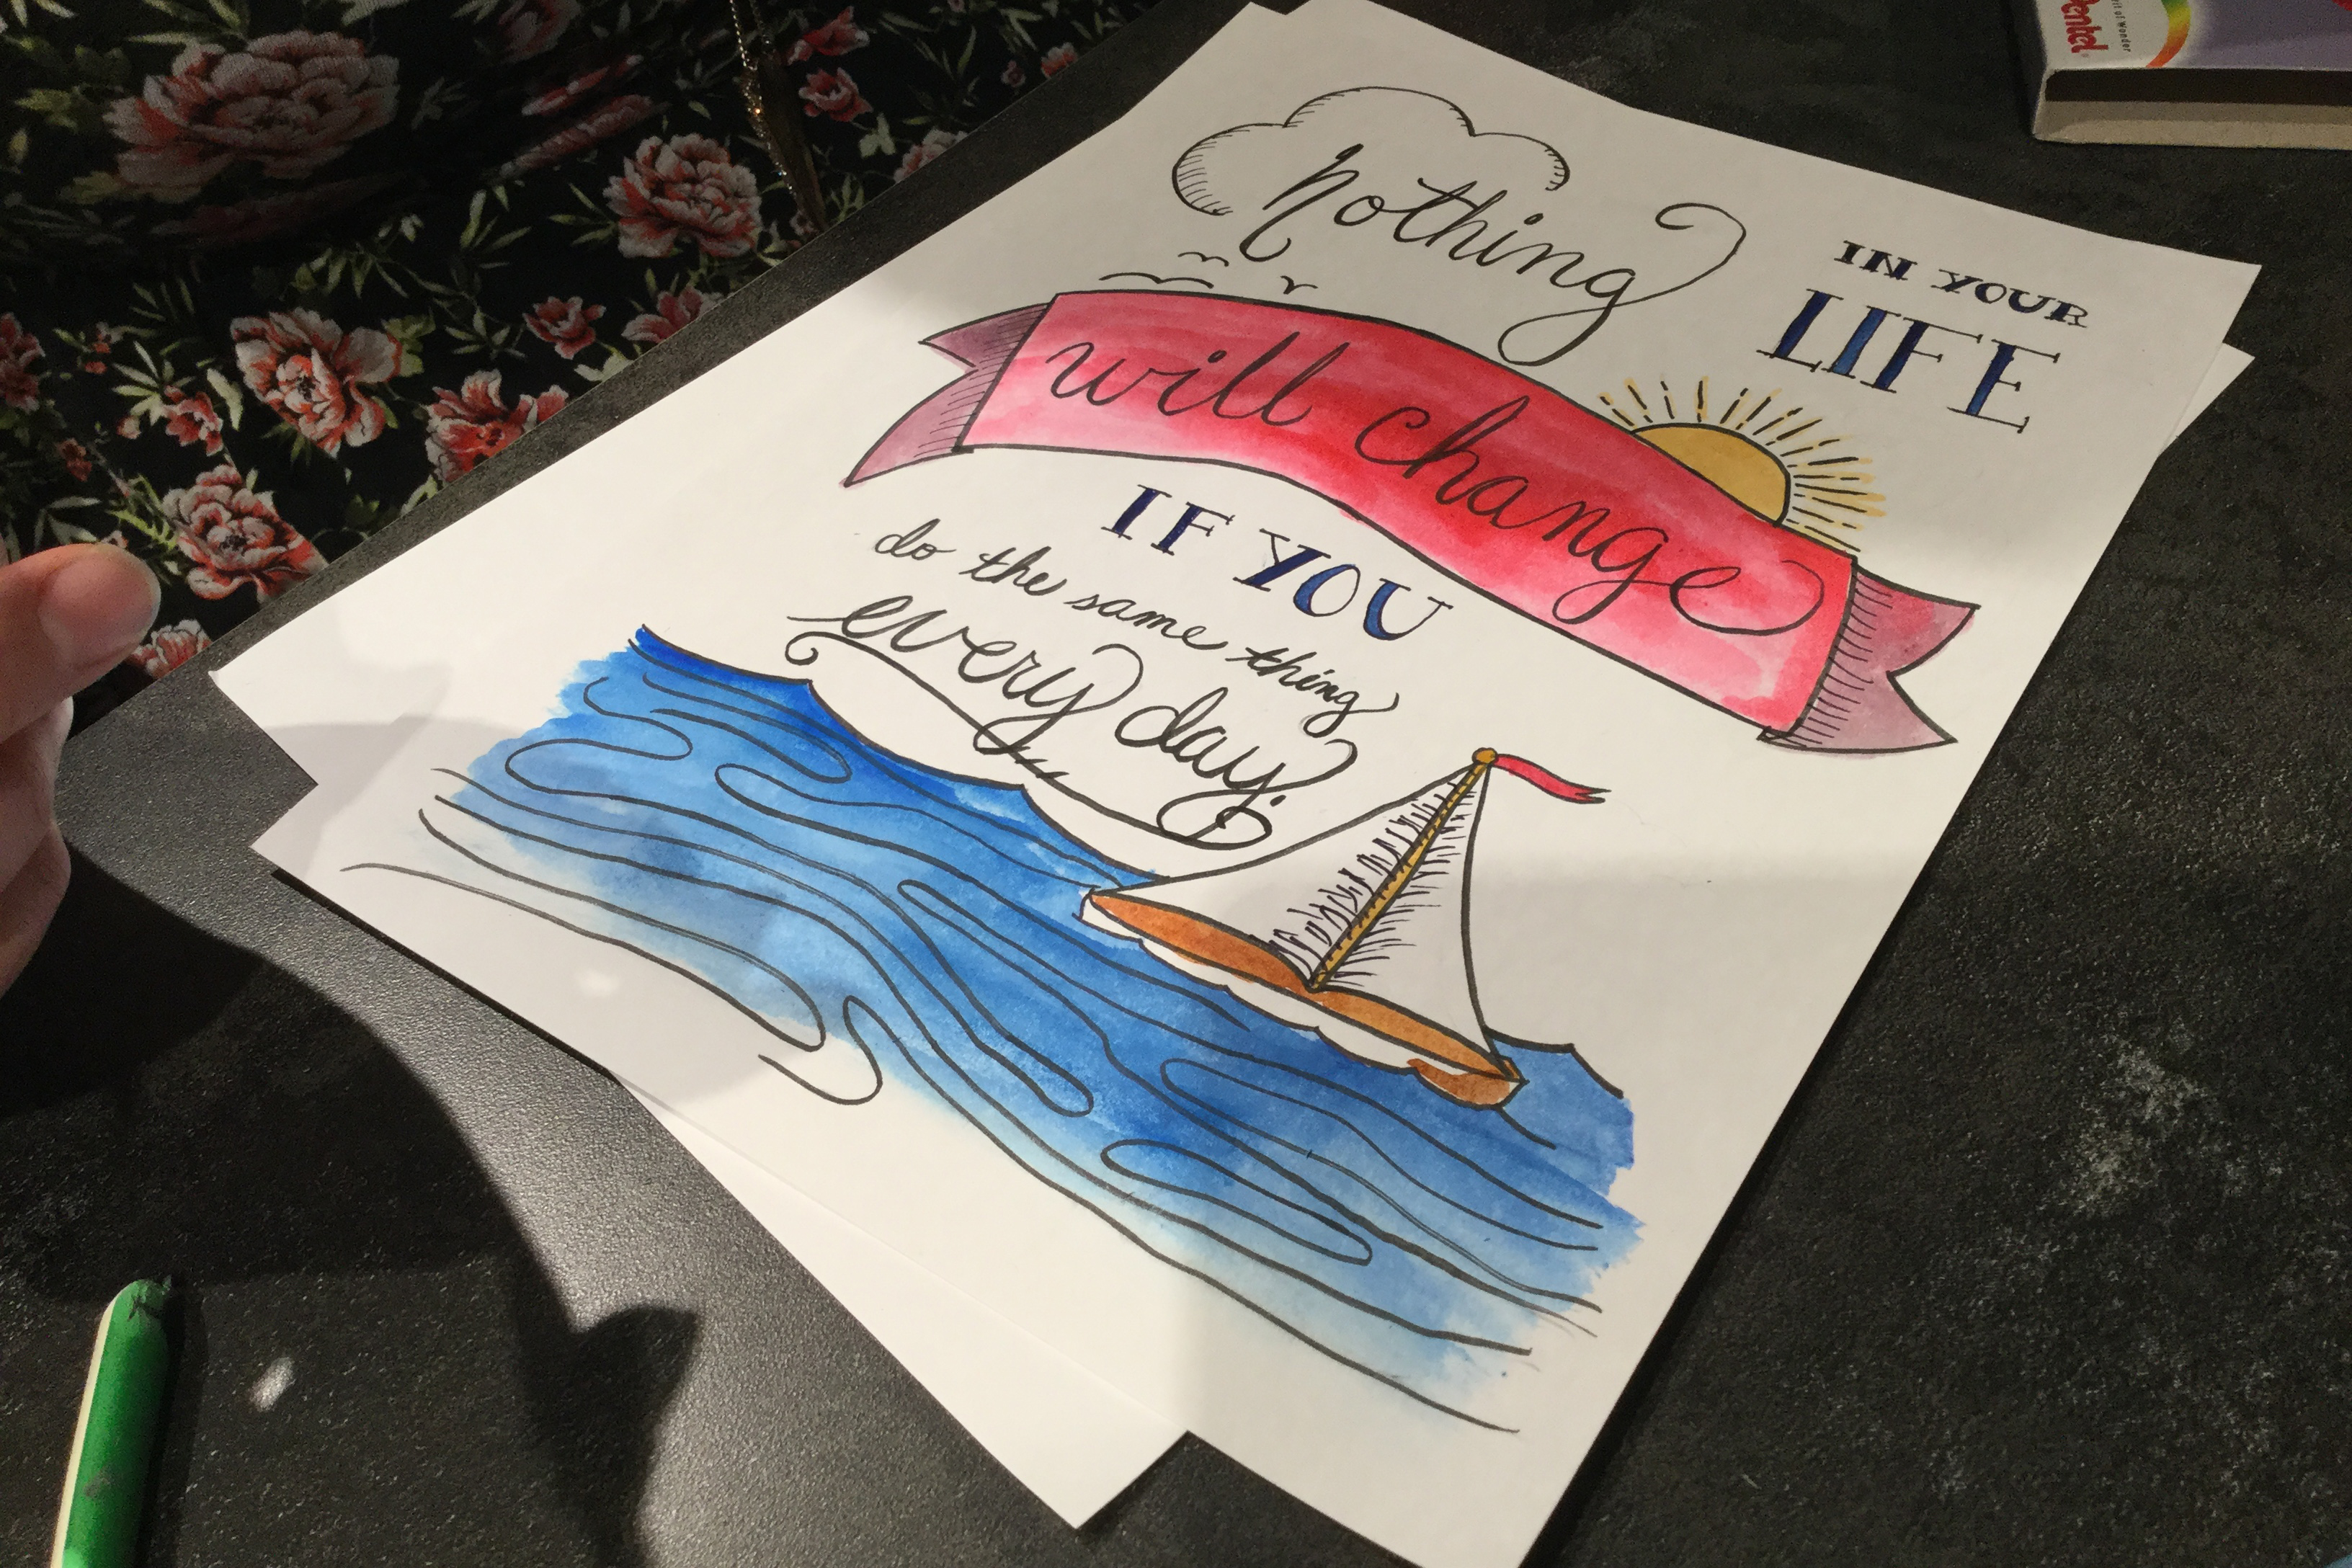 nothing
IN YOUR
LIFE
will change
IF YOU
do the same thing
every day.
Pentel